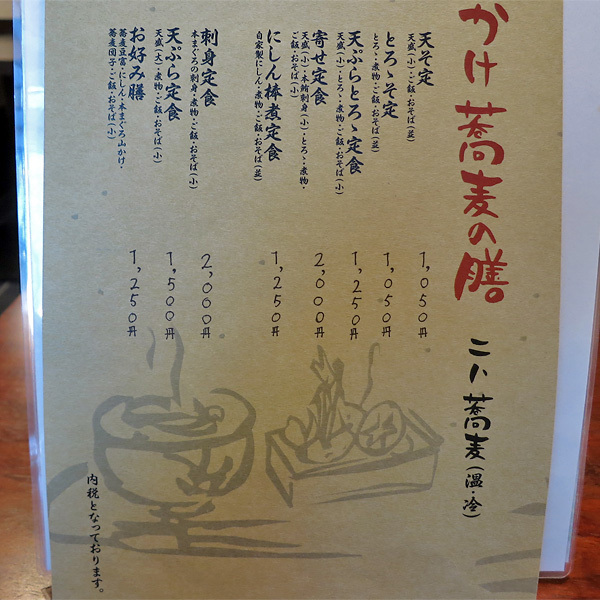 かけ蕎麦の膳
二八蕎麦(温・冷)
天そ定
天盛(小)・ご飯・おそば(並)
1,050円
とろゝそ定
とろゝ・煮物・ご飯・おそば(並)
1,050円
天ぷらとろゝ定食
天盛(小)・とろゝ・煮物・ご飯・おそば(小)
1,250円
寄せ定食
天盛(小)・本鮪刺身(小)・とろゝ・煮物・
ご飯・おそば(小)
2,000円
にしん棒煮定食
自家製にしん・煮物・ご飯・おそば(並)
1,250円
刺身定食
本まぐろの刺身・煮物・ご飯・おそば(小)
2,000円
天ぷら定食
天盛(大)・煮物・ご飯・おそば(小)
1,500円
お好み膳
蕎麦豆富・にしん・本まぐろ山かけ・
蕎麦団子・ご飯・おそば(小)
1,250円
内税となっております。